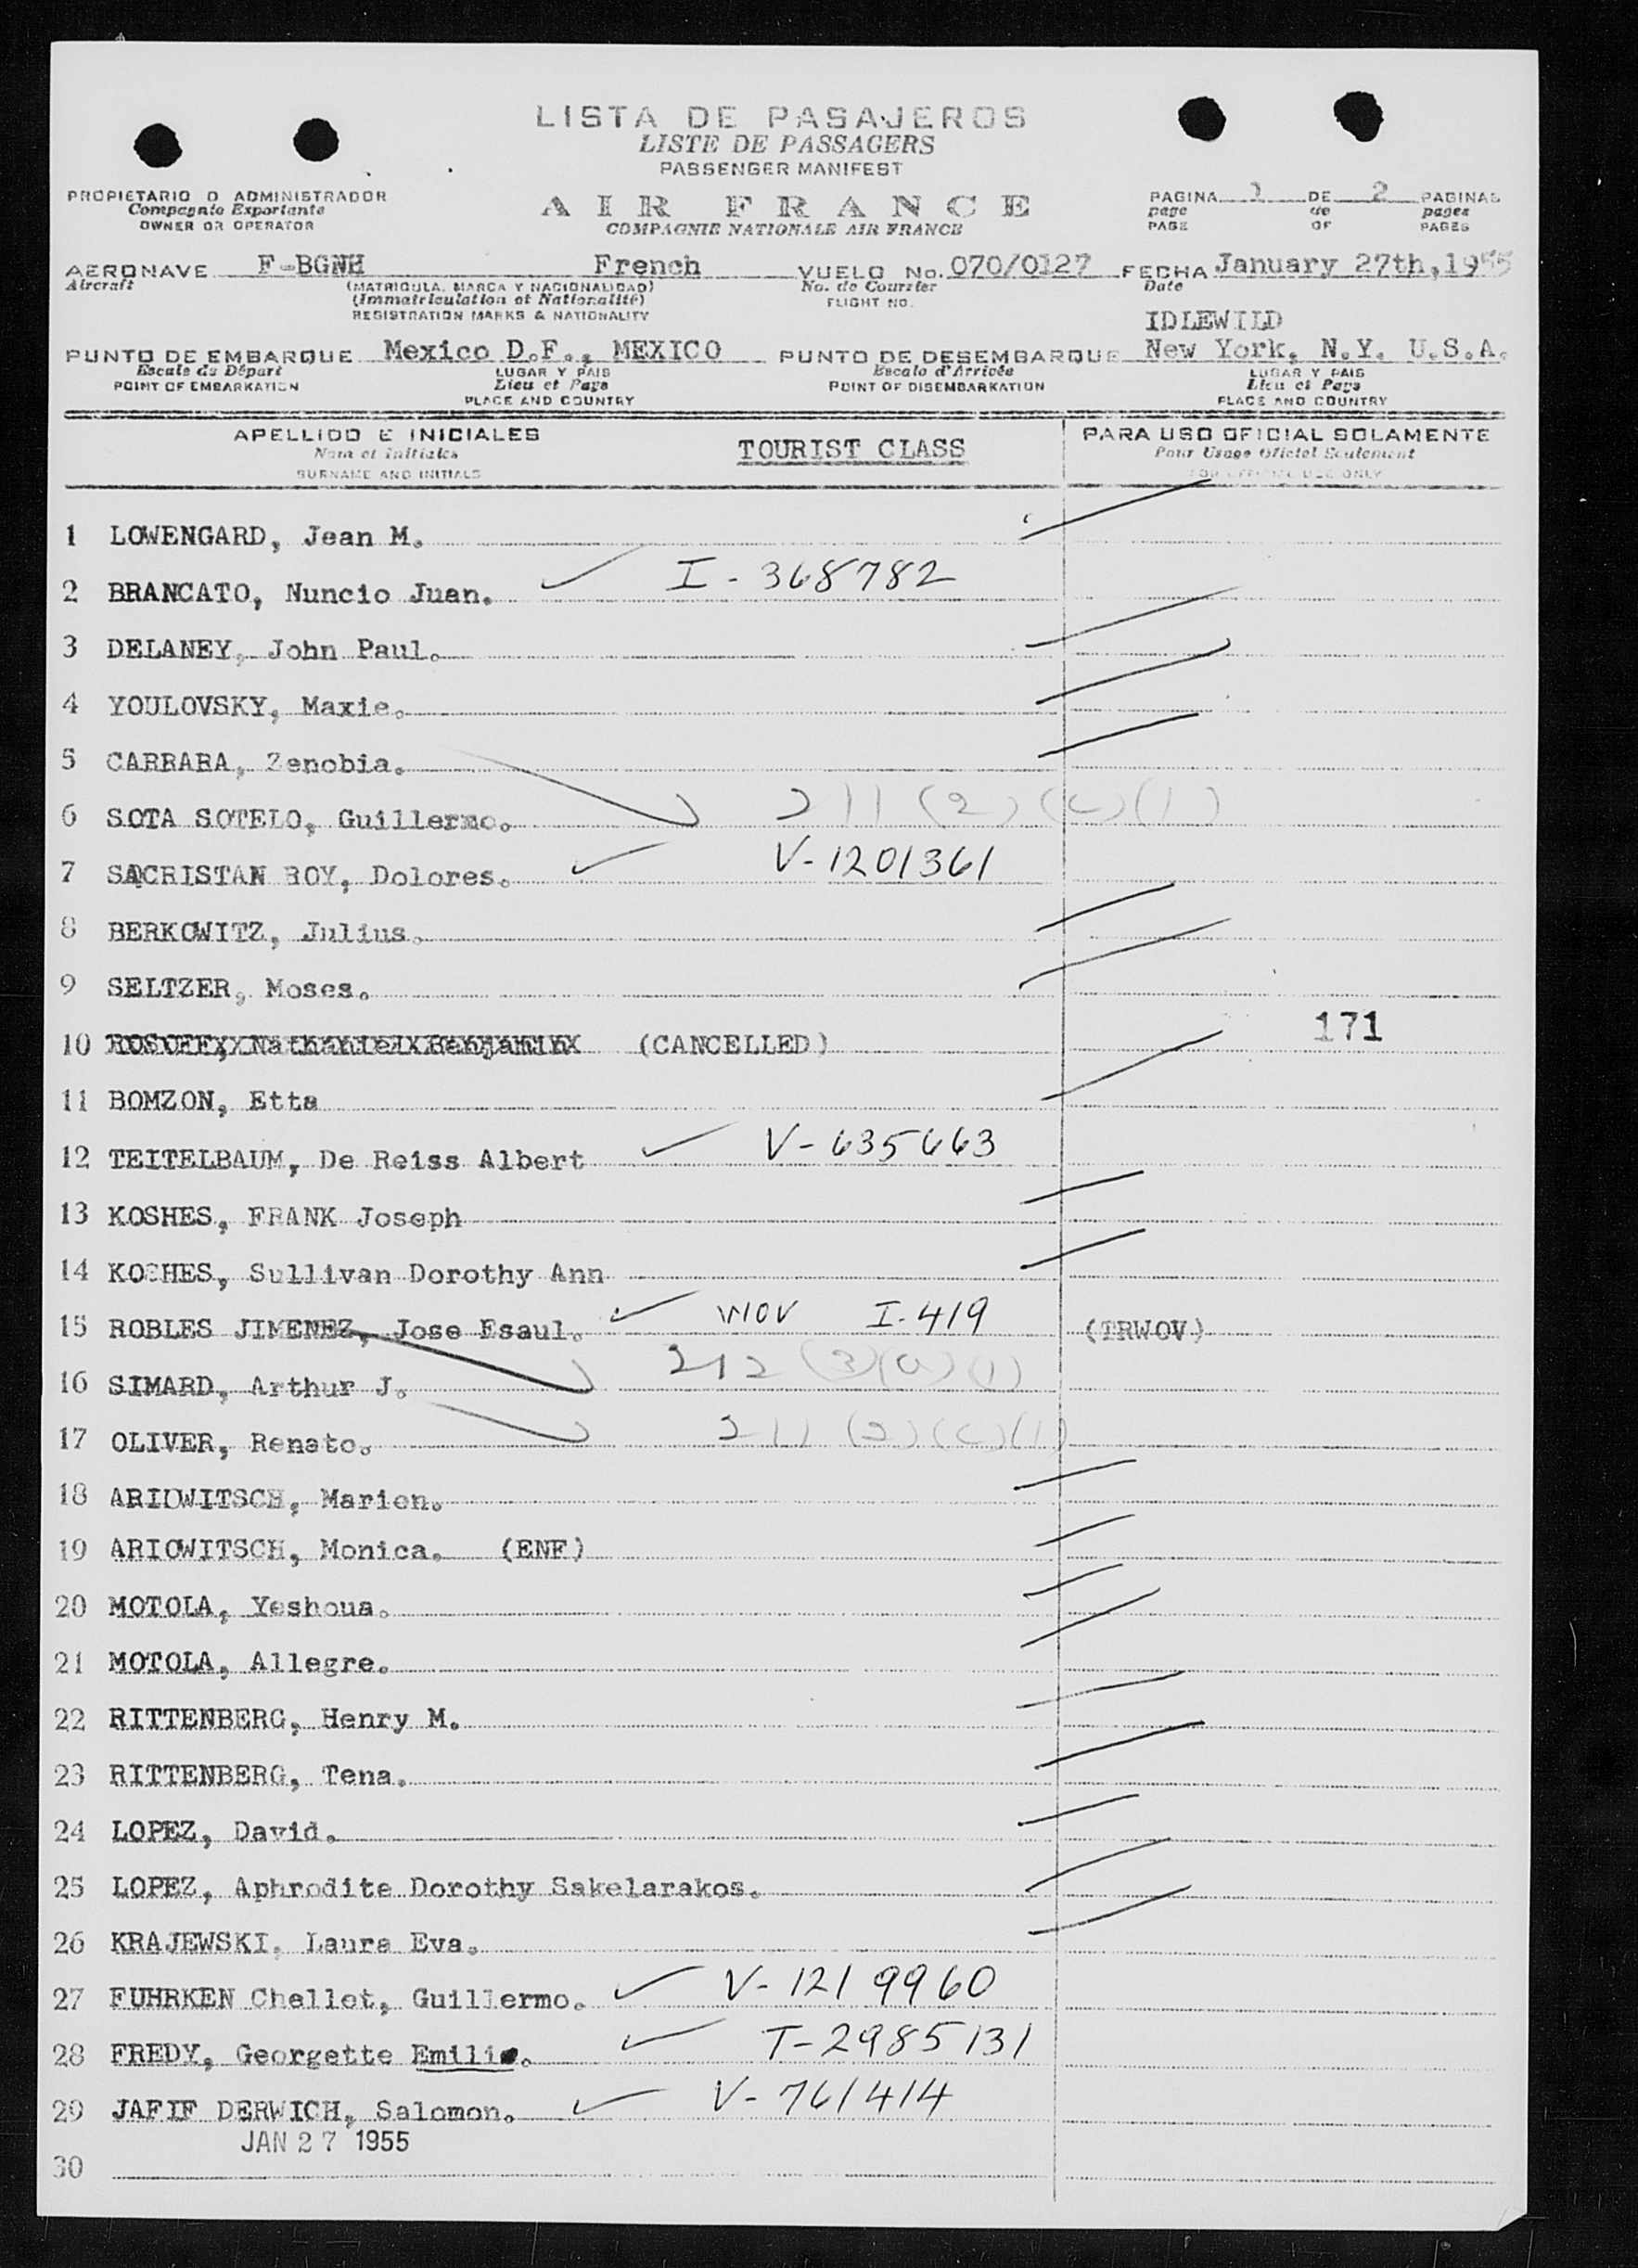 LISTA DE PASAJEROS
LISTE DE PASSAGERS
PASSENGER MANIFEST
PROPIETARIO O ADMINISTRADOR
Compagnie Exploitante
OWNER OR OPERATOR
AIR FRANCE
COMPAGNIE NATIONALE AIR FRANCE
PAGINA 1 DE 2 PAGINAS
page de pages
PAGE OF PAGES
AERONAVE F-BGNH French VUELO No. 070/0127 FECHA January 27th, 1955
Aircraft (MATRICULA, MARCA Y NACIONALIDAD) No. de Courrier Date
(Immatriculation et Nationalité) FLIGHT NO.
REGISTRATION MARKS & NATIONALITY
IDLEWILD
PUNTO DE EMBARQUE Mexico D.F., MEXICO PUNTO DE DESEMBARQUE New York, N.Y. U.S.A.
Escale du Départ LUGAR Y PAIS Escale d'Arrivée LUGAR Y PAIS
POINT OF EMBARKATION Lieu et Pays POINT OF DISEMBARKATION Lieu et Pays
PLACE AND COUNTRY PLACE AND COUNTRY
APELLIDO E INICIALES TOURIST CLASS PARA USO OFICIAL SOLAMENTE
Nom et Initiales Pour Usage Officiel Seulement
SURNAME AND INITIALS FOR OFFICIAL USE ONLY
1 LOWENGARD, Jean M.
2 BRANCATO, Nuncio Juan. I-368782
3 DELANEY, John Paul.
4 YOULOVSKY, Maxie.
5 CARRARA, Zenobia.
6 SOTA SOTELO, Guillermo. 211 (2) (C) (1)
7 SACRISTAN ROY, Dolores. V-1201361
8 BERKOWITZ, Julius.
9 SELTZER, Moses.
10 (CANCELLED) 171
11 BOMZON, Etta
12 TEITELBAUM, De Reiss Albert V-635663
13 KOSHES, FRANK Joseph
14 KOSHES, Sullivan Dorothy Ann
15 ROBLES JIMENEZ, Jose Esaul. WOV I-419 (TRWOV)
16 SIMARD, Arthur J. 212 (3) (a) (1)
17 OLIVER, Renato. 211 (2) (C) (1)
18 ARIOWITSCH, Marion.
19 ARIOWITSCH, Monica. (ENF)
20 MOTOLA, Yeshoua.
21 MOTOLA, Allegre.
22 RITTENBERG, Henry M.
23 RITTENBERG, Tena.
24 LOPEZ, David.
25 LOPEZ, Aphrodite Dorothy Sakelarakos.
26 KRAJEWSKI, Laura Eva.
27 FUHRKEN Chellet, Guillermo. V-1219960
28 FREDY, Georgette Emilie. T-2985131
29 JAFIF DERWICH, Salomon. V-761414
JAN 27 1955
30